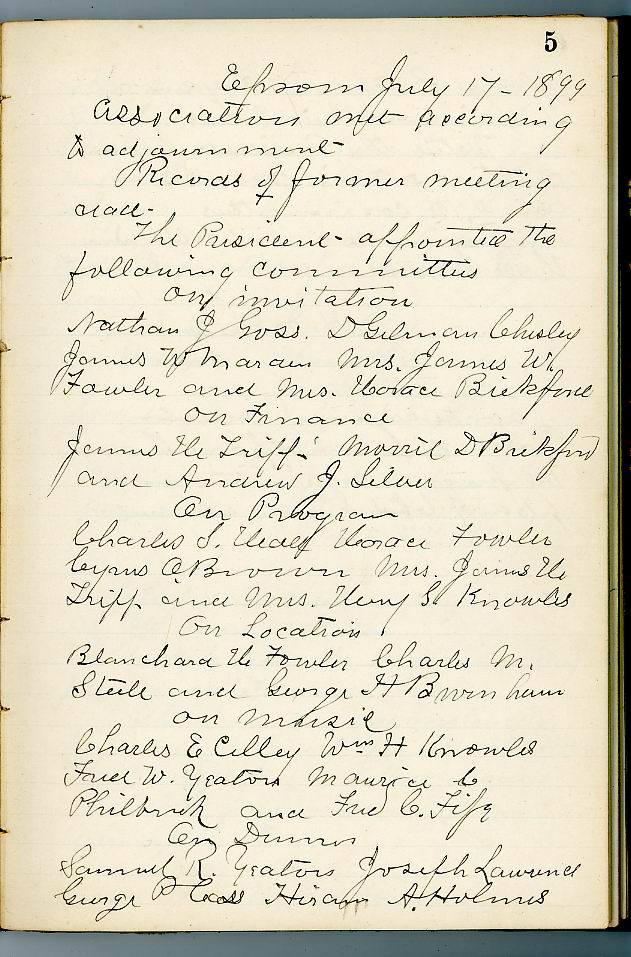 5
Epsom July 17 - 1899
Association met according
to adjournment
Records of former meeting
read -
The President appointed the
following committees
On invitation
Nathan J Goss. D Gilman Chesley
James W Marden Mrs. James W.
Fowler and Mrs. Horace Bickford
On Finance
James H Tripp Morrill D Bickford
and Andrew J. Silver
On Program
Charles S. Heald Horace Fowler
Cyrus O Brown Mrs. James H
Tripp and Mrs. Henry S. Knowles
On Location
Blanchard H Fowler Charles M.
Steele and George H Burnham
On Music
Charles E Cilley Wm H Knowles
Fred W. Yeaton Maurice C
Philbrick and Fred C. Fife
On Dinner
Samuel R. Yeaton Joseph Lawrence
George P Cass Hiram A. Holmes